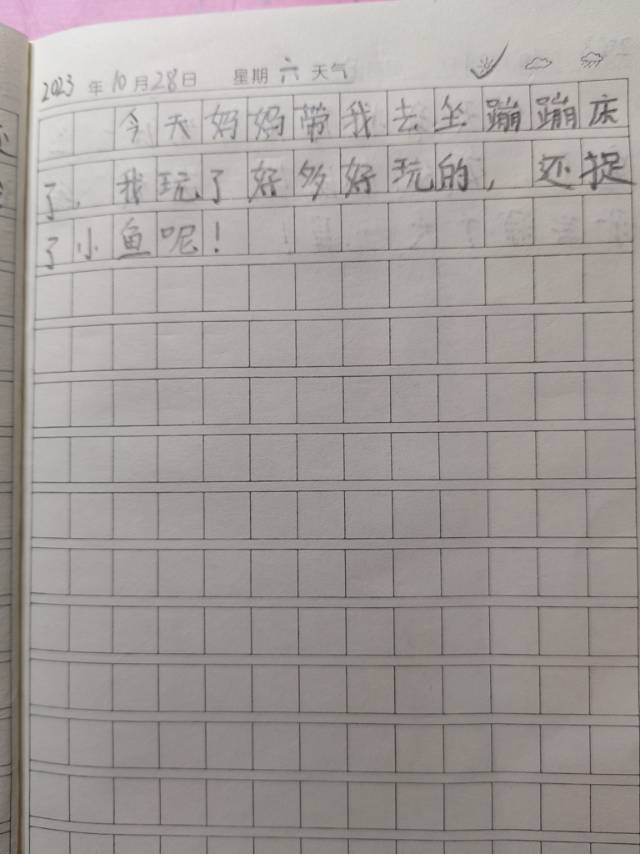 2023年10月28日 星期六 天气
今天妈妈带我去坐蹦蹦床
了，我玩了好多好玩的，还捉
了小鱼呢！